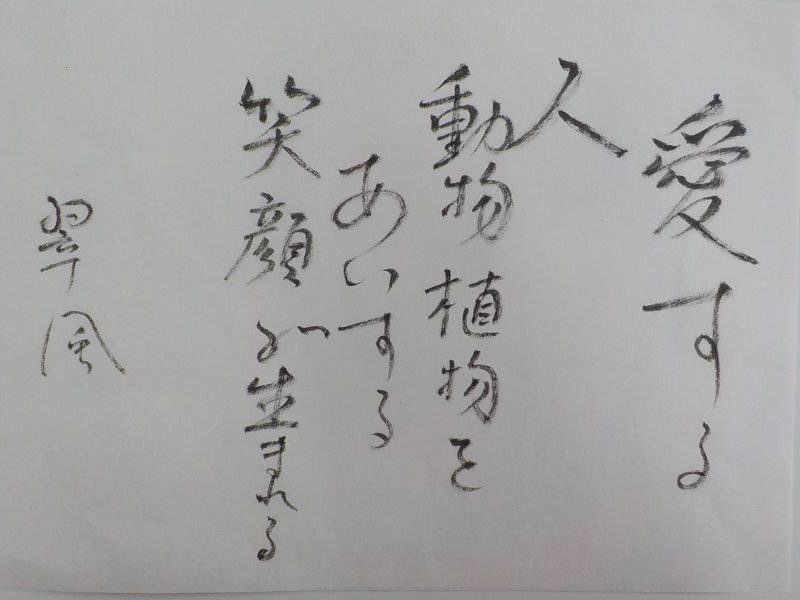 愛する
人
動物植物を
あいする
笑顔が生まれる
翠風